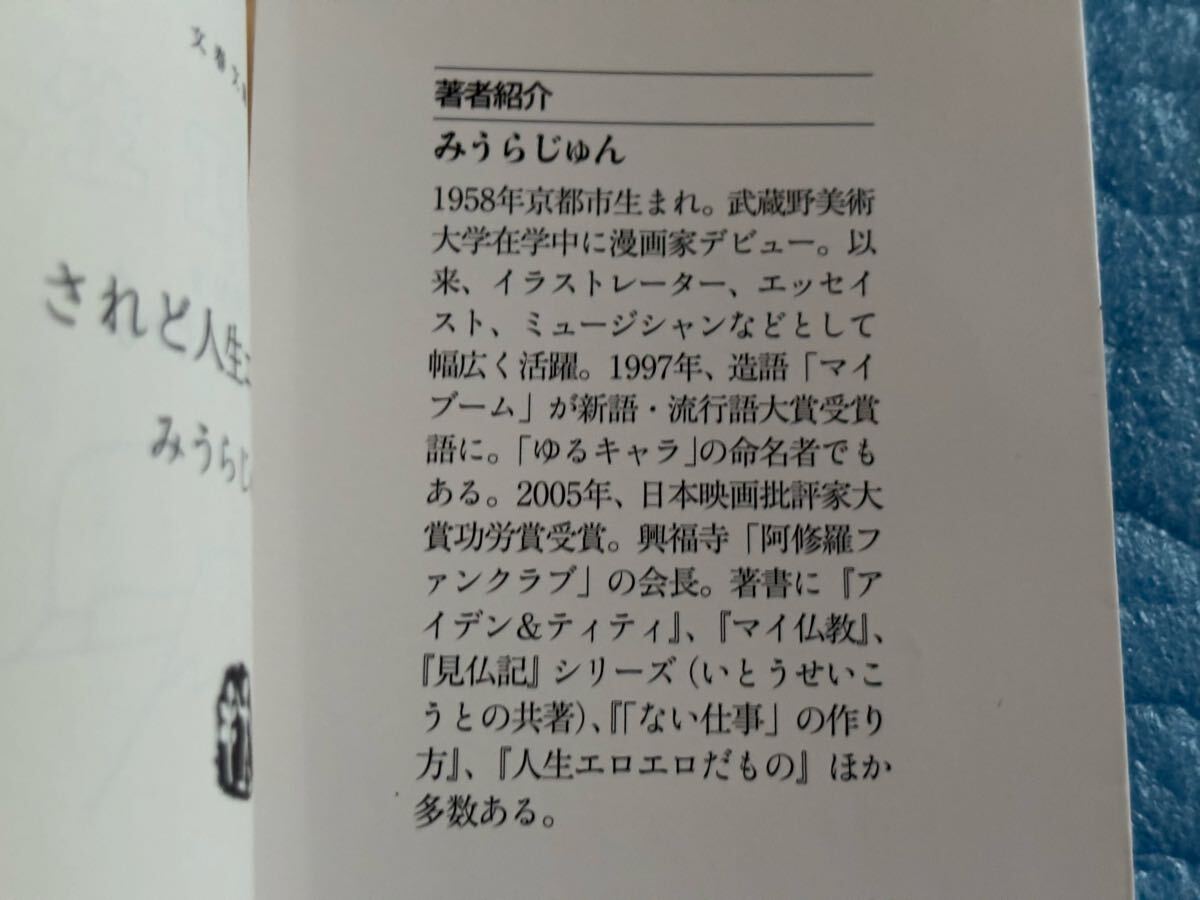 文春文
されど人生エ
みうらじ
著者紹介
みうらじゅん
1958年京都市生まれ。武蔵野美術
大学在学中に漫画家デビュー。以
来、イラストレーター、エッセイ
スト、ミュージシャンなどとして
幅広く活躍。1997年、造語「マイ
ブーム」が新語・流行語大賞受賞
語に。「ゆるキャラ」の命名者でも
ある。2005年、日本映画批評家大
賞功労賞受賞。興福寺「阿修羅フ
ァンクラブ」の会長。著書に『ア
イデン&ティティ』、『マイ仏教』、
『見仏記』シリーズ(いとうせいこ
うとの共著)、『「ない仕事」の作り
方』、『人生エロエロだもの』ほか
多数ある。